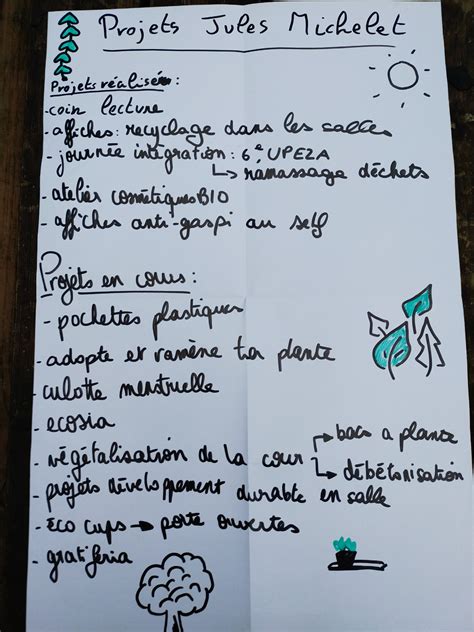 Projets Jules Michelet
Projets réalisés :
- coin lecture
- affiches : recyclage dans les salles
- journée intégration : 6e, UPE2A
↳ ramassage déchets
- atelier cosmétiques BIO
- affiches anti-gaspi au self
Projets en cours :
- pochettes plastiques
- adopte et ramène ta plante
- culotte menstruelle
- ecosia
- végétalisation de la cour → bacs a plante
↳ débétonisation
- projets développement durable en salle
- éco cups → porte ouvertes
- gratiferia